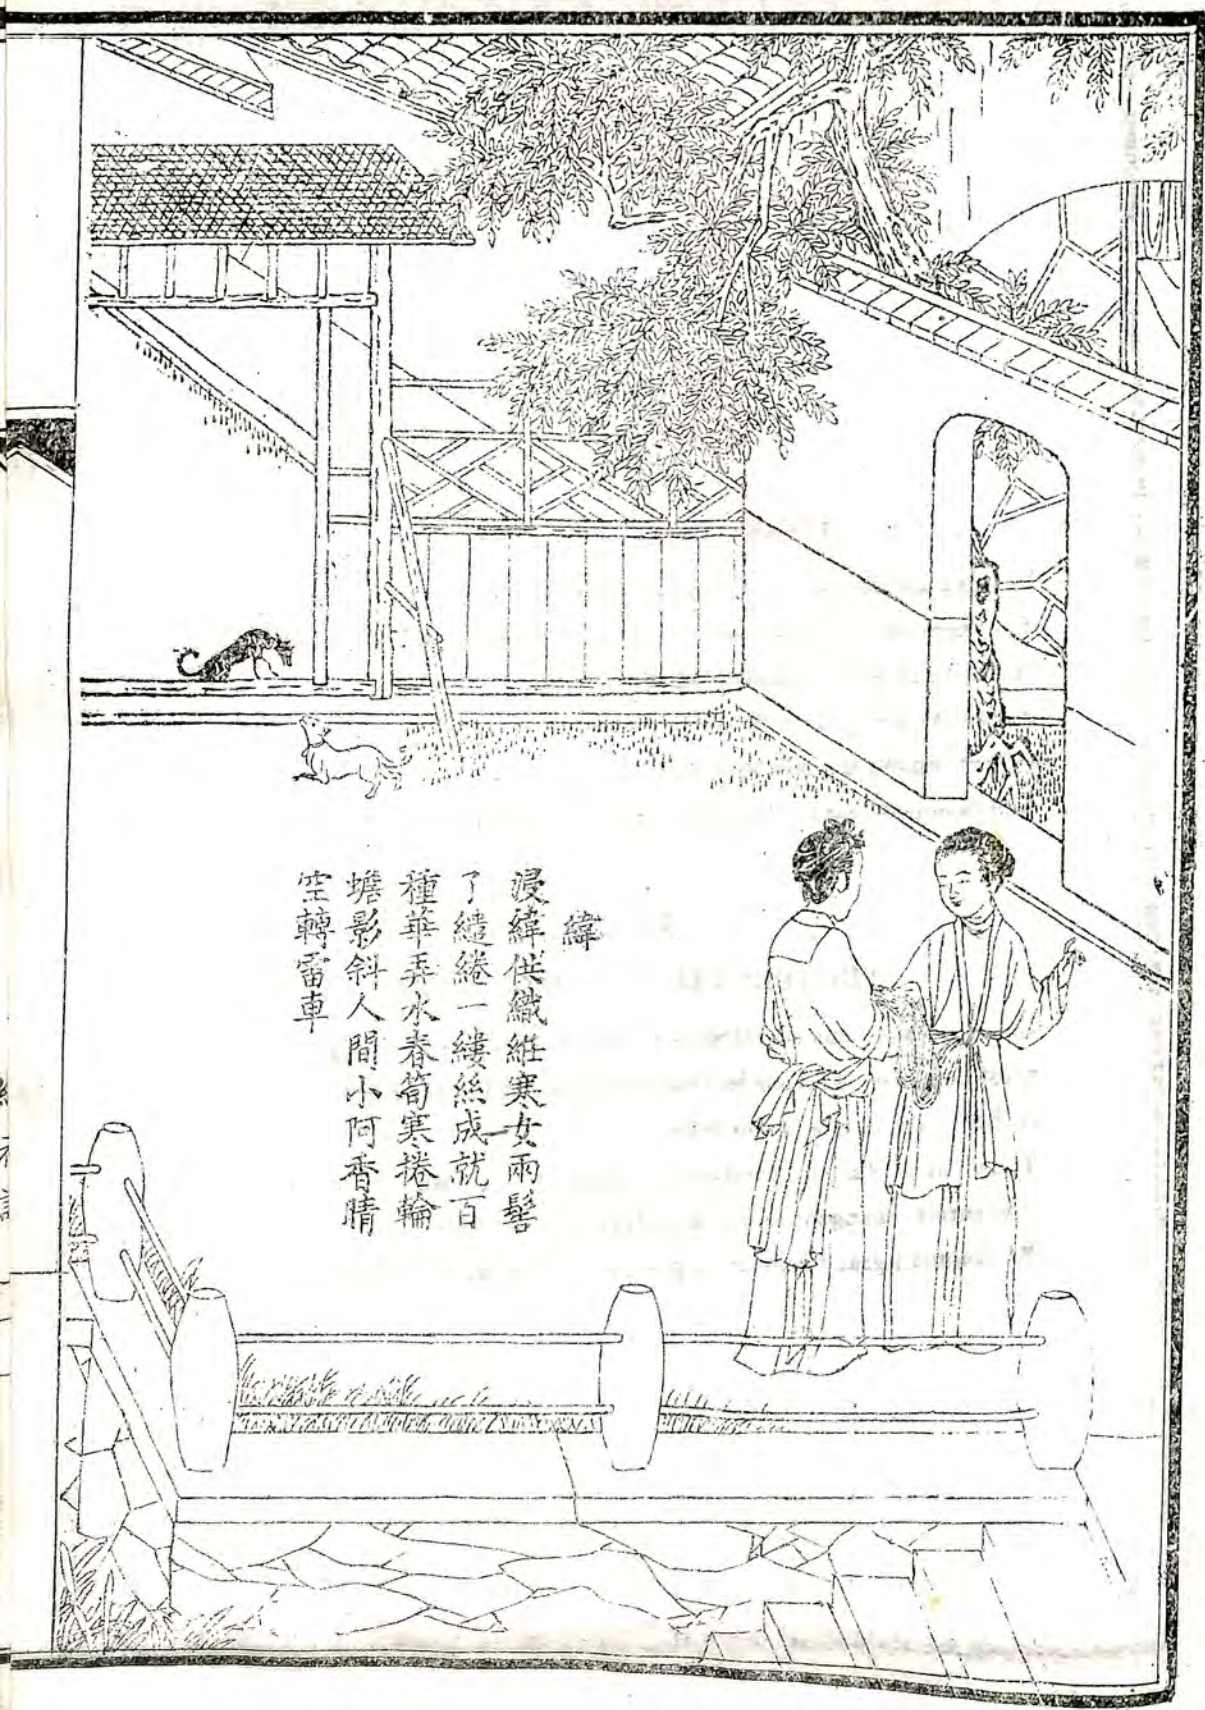 緯
浸緯供織絍寒女兩髻
了繾綣一縷絲成就百
種華弄水春筍寒捲輪
蟾影斜人間小阿香晴
空轉雷車